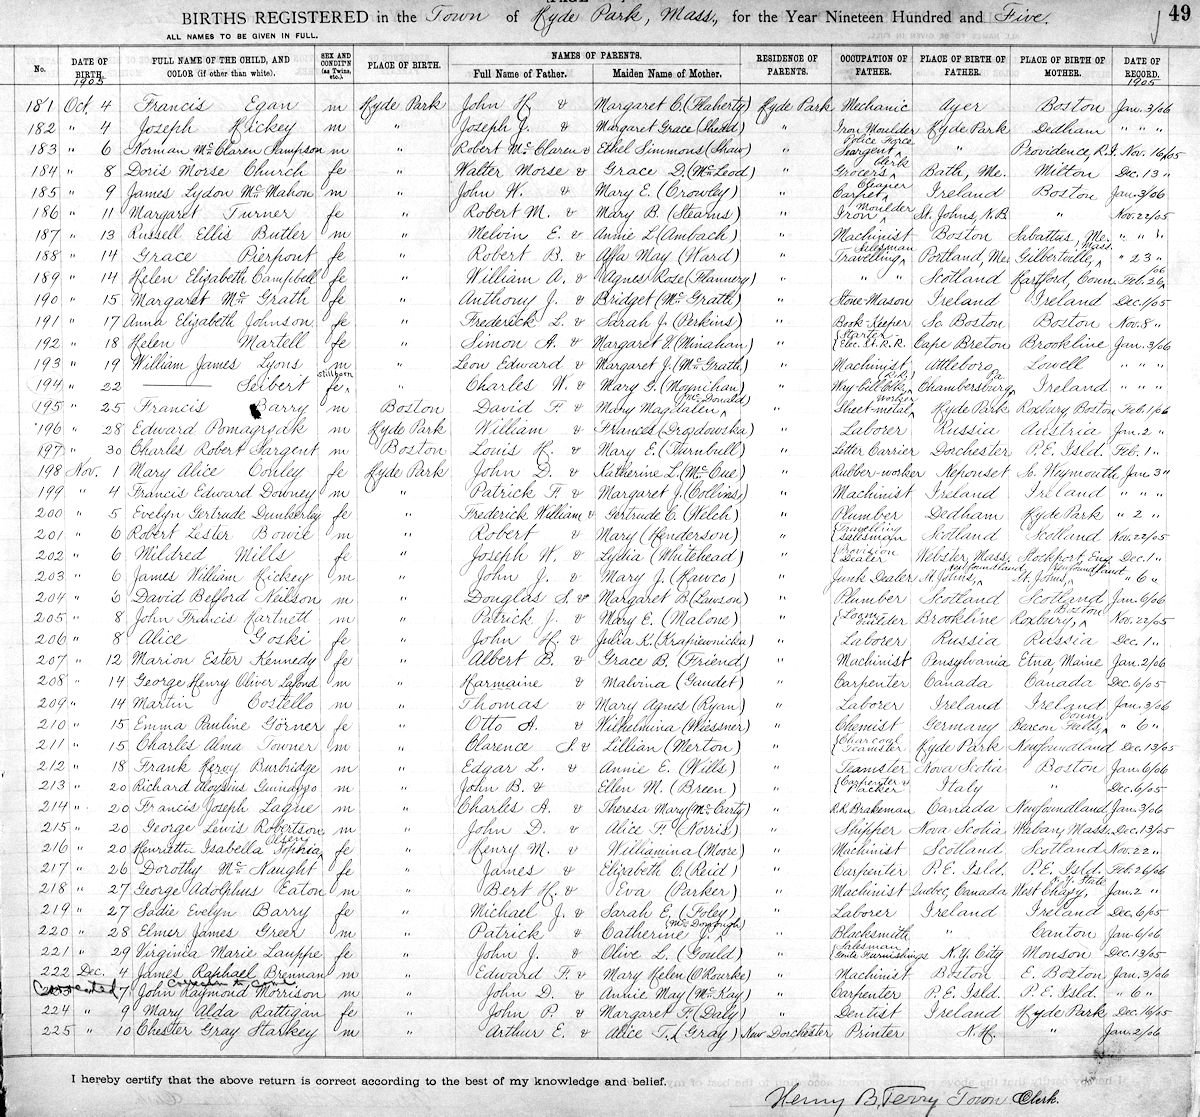 49
BIRTHS REGISTERED in the Town of Hyde Park, Mass., for the Year Nineteen Hundred and Five.
ALL NAMES TO BE GIVEN IN FULL.
No. DATE OF BIRTH. 1905 FULL NAME OF THE CHILD, AND COLOR (if other than white). SEX AND CONDIT'N (as Twins, etc.) PLACE OF BIRTH. NAMES OF PARENTS. Full Name of Father. Maiden Name of Mother. RESIDENCE OF PARENTS. OCCUPATION OF FATHER. PLACE OF BIRTH OF FATHER. PLACE OF BIRTH OF MOTHER. DATE OF RECORD. 1905
181 Oct. 4 Francis Egan m Hyde Park John H. & Margaret C. (Flaherty) Hyde Park Mechanic Ayer Boston Jan. 3/06
182 " 4 Joseph Hickey m " Joseph J. & Margaret Grace (Shedd) " Iron Moulder Hyde Park Dedham " " "
183 " 6 Norman McClaren Sampson m " Robert McClaren & Ethel Simmons (Shaw) " Police Force Seargent " Providence, R.I. Nov. 16/05
184 " 8 Doris Morse Church fe " Walter Morse & Grace D. (McLeod) " Grocers Clerk Bath, Me. Milton Dec. 13 "
185 " 9 James Lydon McMahon m " John W. & Mary E. (Crowley) " Carpet Cleaner Ireland Boston Jan. 3/06
186 " 11 Margaret Turner fe " Robert M. & Mary B. (Stearns) " Iron Moulder St. Johns, N.B. " Nov. 22/05
187 " 13 Russell Ellis Butler m " Melvin E. & Annie L. (Ambach) " Machinist Boston Sabattus, Me. " " "
188 " 14 Grace Pierpont fe " Robert B. & Affa May (Ward) " Traveling Salesman Portland, Me. Gilbertville, Mass. " 23 "
189 " 14 Helen Elizabeth Campbell fe " William A. & Agnes Rose (Flannery) " " " Scotland Hartford, Conn. Feb. 26/06
190 " 15 Margaret McGrath fe " Anthony J. & Bridget (McGrath) " Stone-Mason Ireland Ireland Dec. 1/05
191 " 17 Anna Elizabeth Johnson fe " Frederick L. & Sarah J. (Perkins) " Book-Keeper So. Boston Boston Nov. 8 "
192 " 18 Helen Martell fe " Simon A. & Margaret E. (Minahan) " Starter Elec. St. R.R. Cape Breton Brookline Jan. 3/06
193 " 19 William James Lyons m " Leon Edward & Margaret J. (McGrath) " Machinist Attleboro Lowell " " "
194 " 22 —— Seibert stillborn fe " Charles W. & Mary G. (Moynihan) " Way-bill Clk. (R.R.) Chambersburg, Pa. Ireland " " "
195 " 25 Francis Barry m Boston David F. & Mary Magdalen (McDonald) " Sheet-metal worker Hyde Park Roxbury, Boston Feb. 1/06
196 " 28 Edward Pomagryak m Hyde Park William & Frances (Drozdowska) " Laborer Russia Austria Jan. 2 "
197 " 30 Charles Robert Sargent m Boston Louis H. & Mary E. (Turnbull) " Letter Carrier Dorchester P.E. Isld. Feb. 1 "
198 Nov. 1 Mary Alice Conley fe Hyde Park John D. & Katherine L. (McCue) " Rubber-worker Neponset So. Weymouth Jan. 3 "
199 " 4 Francis Edward Downey m " Patrick F. & Margaret J. (Collins) " Machinist Ireland Ireland " " "
200 " 5 Evelyn Gertrude Dunkerley fe " Frederick William & Gertrude C. (Welch) " Plumber Dedham Hyde Park " 2 "
201 " 6 Robert Lester Bowie m " Robert & Mary (Henderson) " Traveling Salesman Scotland Scotland Nov. 22/05
202 " 6 Mildred Mills fe " Joseph W. & Lydia (Whitehead) " Provision Dealer Webster, Mass. Stockport, Eng. Dec. 1 "
203 " 6 James William Hickey m " John J. & Mary J. (Hawco) " Junk Dealer St. Johns, Newfoundland St. Johns, Newfoundland " 6 "
204 " 6 David Belford Neilson m " Douglas S. & Margaret B. (Lawson) " Plumber Scotland Scotland Jan. 6/06
205 " 8 John Francis Hartnett m " Patrick J. & Mary E. (Malone) " Loom Builder Brookline Roxbury, Boston Nov. 22/05
206 " 8 Alice Goski fe " John H. & Julia K. (Krapiewnicka) " Laborer Russia Russia Dec. 1 "
207 " 12 Marion Ester Kennedy fe " Albert B. & Grace B. (Friend) " Machinist Pensylvania Etna Maine Jan. 2/06
208 " 14 George Henry Oliver Lafond m " Harmaine & Malvina (Gaudet) " Carpenter Canada Canada Dec. 6/05
209 " 14 Martin Costello m " Thomas & Mary Agnes (Ryan) " Laborer Ireland Ireland Jan. 3/06
210 " 15 Emma Pauline Görner fe " Otto A. & Wilhelmina (Wiessner) " Chemist Germany Beacon Falls, Conn. " 6 "
211 " 15 Charles Alma Towner m " Clarence S. & Lillian (Merton) " Charcoal Teamster Hyde Park Newfoundland Dec. 13/05
212 " 18 Frank Hervy Burbridge m " Edgar L. & Annie E. (Wills) " Teamster Nova Scotia Boston Jan. 6/06
213 " 20 Richard Aloysius m " John B. & Ellen M. (Breen) " Carpenter Italy " Dec. 6/05
214 " 20 Francis Joseph Lague m " Charles A. & Theresa Mary (McCarty) " R.R. Brakeman Canada Newfoundland Jan. 3/06
215 " 20 George Lewis Robertson m " John D. & Alice F. (Norris) " Shipper Nova Scotia Waban, Mass. Dec. 13/05
216 " 20 Henrietta Isabella Sophia fe " Henry M. & Williamina (Moore) " Machinist Scotland Scotland Nov. 22 "
217 " 26 Dorothy McNaught fe " James & Elizabeth C. (Reid) " Carpenter P.E. Isld. P.E. Isld. Feb. 26/06
218 " 27 George Adolphus Eaton m " Bert H. & Eva (Parker) " Machinist Quebec, Canada West Chazy, N.Y. State Jan. 2 "
219 " 27 Sadie Evelyn Barry fe " Michael J. & Sarah E. (Foley) " Laborer Ireland Ireland Dec. 6/05
220 " 28 Elmer James Greer m " Patrick & Catherine (McDonough) " Blacksmith " Canton Jan. 6/06
221 " 29 Virginia Marie Lauppe fe " John J. & Olive L. (Gould) " Salesman Gents Furnishings N.Y. City Monson Dec. 13/05
222 Dec. 4 James Raphael Brennan m " Edward F. & Mary Helen (O'Rourke) " Machinist Boston E. Boston Jan. 3/06
Corrected 7 John Raymond Morrison m " John D. & Annie May (McKay) " Carpenter P.E. Isld. P.E. Isld. " 6 "
224 " 9 Mary Alda Rattigan fe " John P. & Margaret F. (Daly) " Dentist Ireland Hyde Park Dec. 16/05
225 " 10 Chester Gray Starkey m " Arthur E. & Alice T. (Gray) New Dorchester Printer N.H. " Jan. 2/06
I hereby certify that the above return is correct according to the best of my knowledge and belief.
Henry B. Terry Town Clerk.